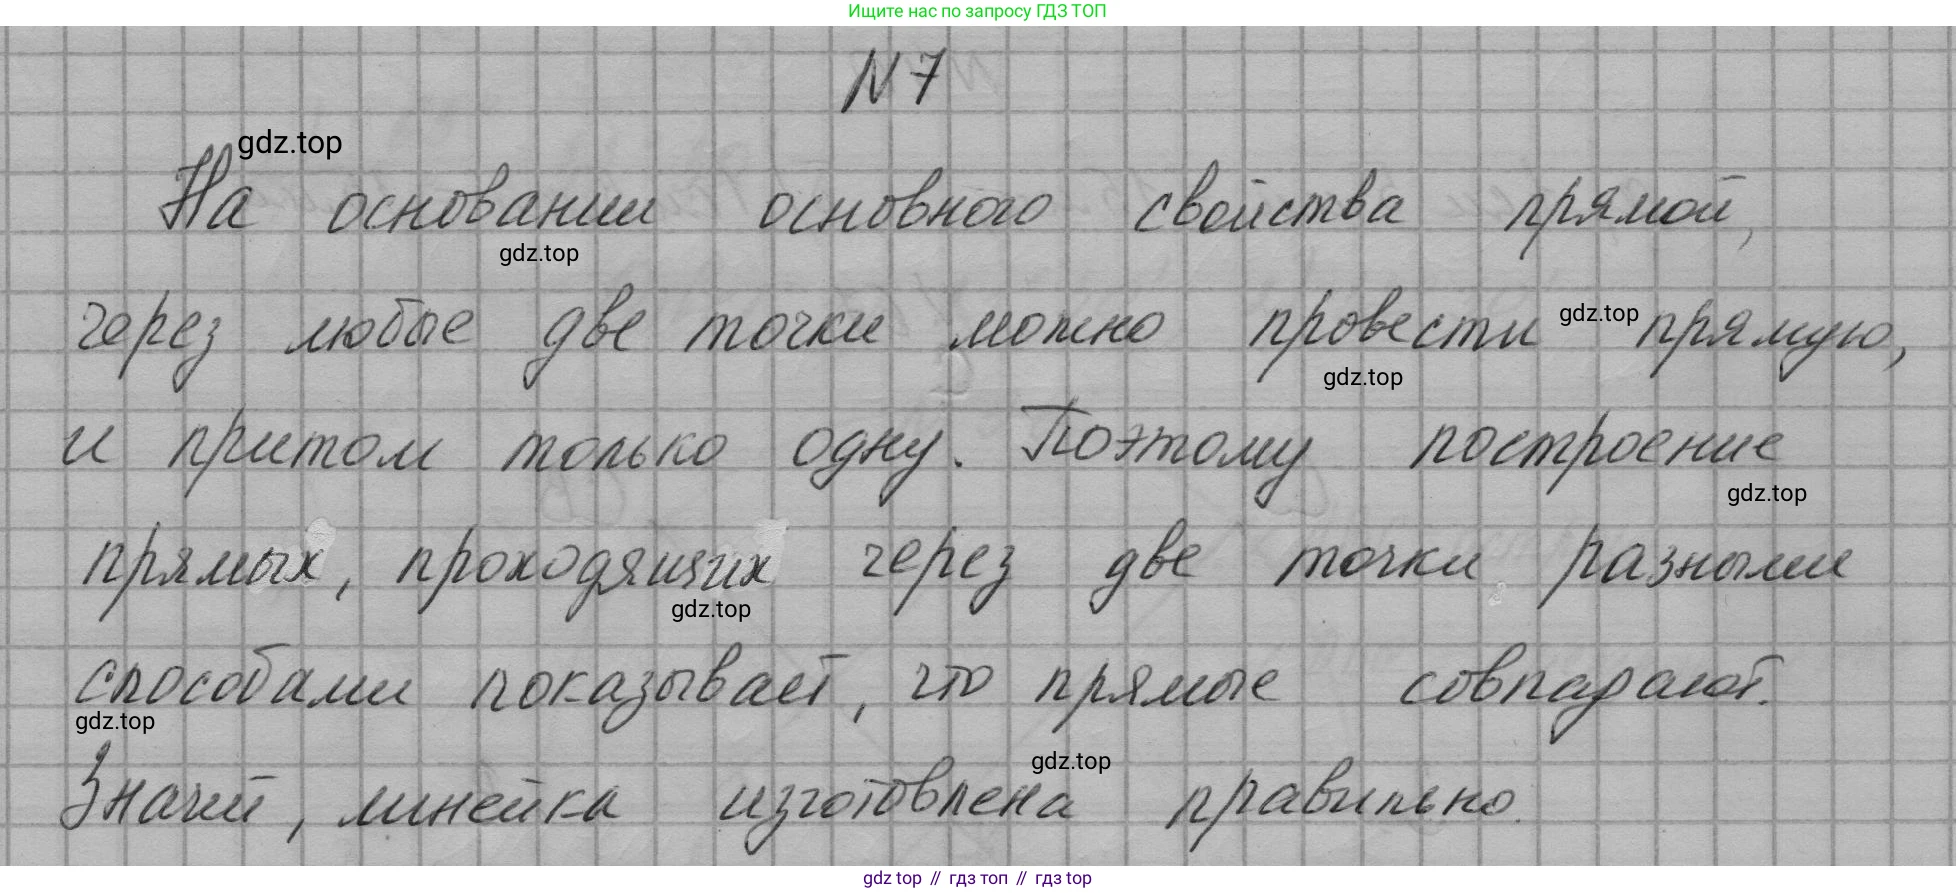 Ищите нас по запросу ГДЗ ТОП
N 7
gdz.top
На основании основного свойства прямой,
gdz.top
через любые две точки можно провести прямую,
gdz.top
gdz.top
и притом только одну. Поэтому построение
gdz.top
прямых, проходящих через две точки разными
gdz.top
способами показывает, что прямые совпадают.
gdz.top
Значит, линейка изготовлена правильно.
gdz.top
gdz top // гдз топ // гдз top